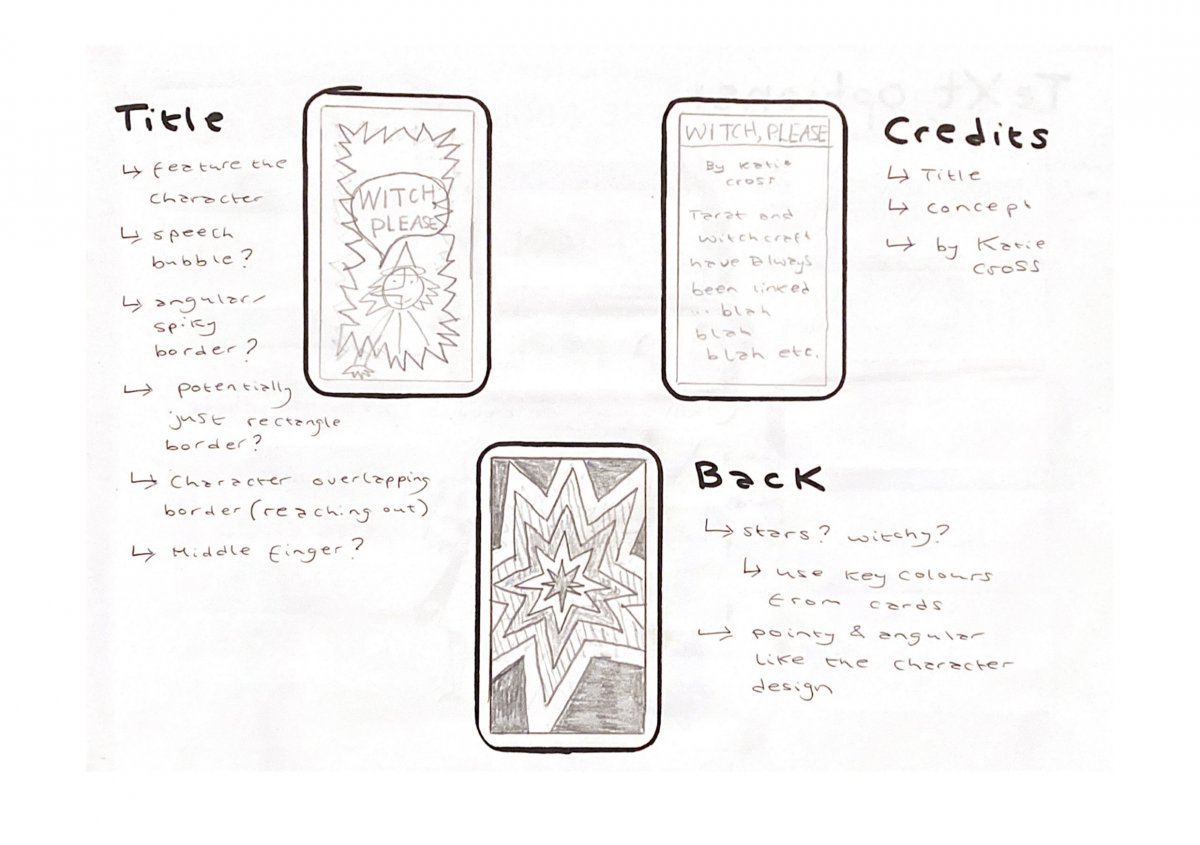 Title
↳ feature the
character
↳ speech
bubble?
↳ angular/
spiky
border?
↳ potentially
just rectangle
border?
↳ Character overlapping
border (reaching out)
↳ Middle finger?
WITCH
PLEASE
WITCH, PLEASE
By Katie
cross
Tarot and
witchcraft
have always
been linked
... blah
blah
blah etc.
Credits
↳ Title
↳ concept
↳ by Katie
cross
Back
↳ stars? witchy?
↳ use key colours
from cards
↳ pointy & angular
like the character
design
TeXt options